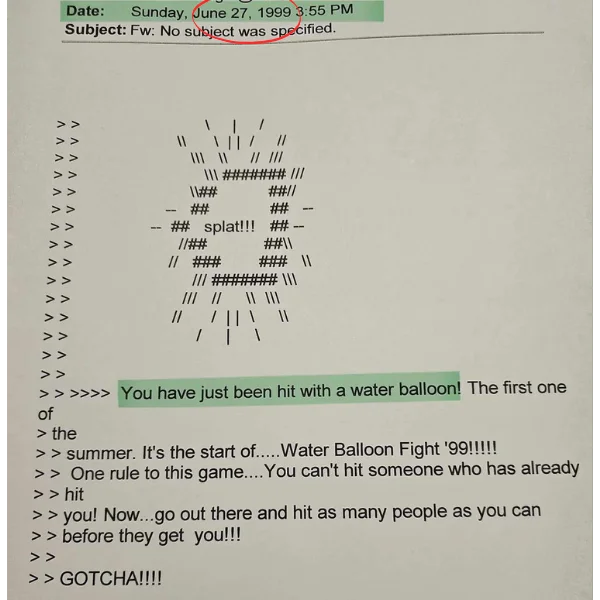 Date: Sunday, June 27, 1999 3:55 PM
Subject: Fw: No subject was specified.
> > \ | /
> > \\ \ | | / //
> > \\\ \\ // ///
> > \\\ ####### ///
> > \\## ##//
> > -- ## ## --
> > -- ## splat!!! ## --
> > //## ##\\
> > // ### ### \\
> > /// ####### \\\
> > /// // \\ \\\
> > // / | | \ \\
> > / | \
> >
> >
> > >>>> You have just been hit with a water balloon! The first one
of
> the
> > summer. It's the start of.....Water Balloon Fight '99!!!!!
> > One rule to this game....You can't hit someone who has already
> > hit
> > you! Now...go out there and hit as many people as you can
> > before they get you!!!
> >
> > GOTCHA!!!!